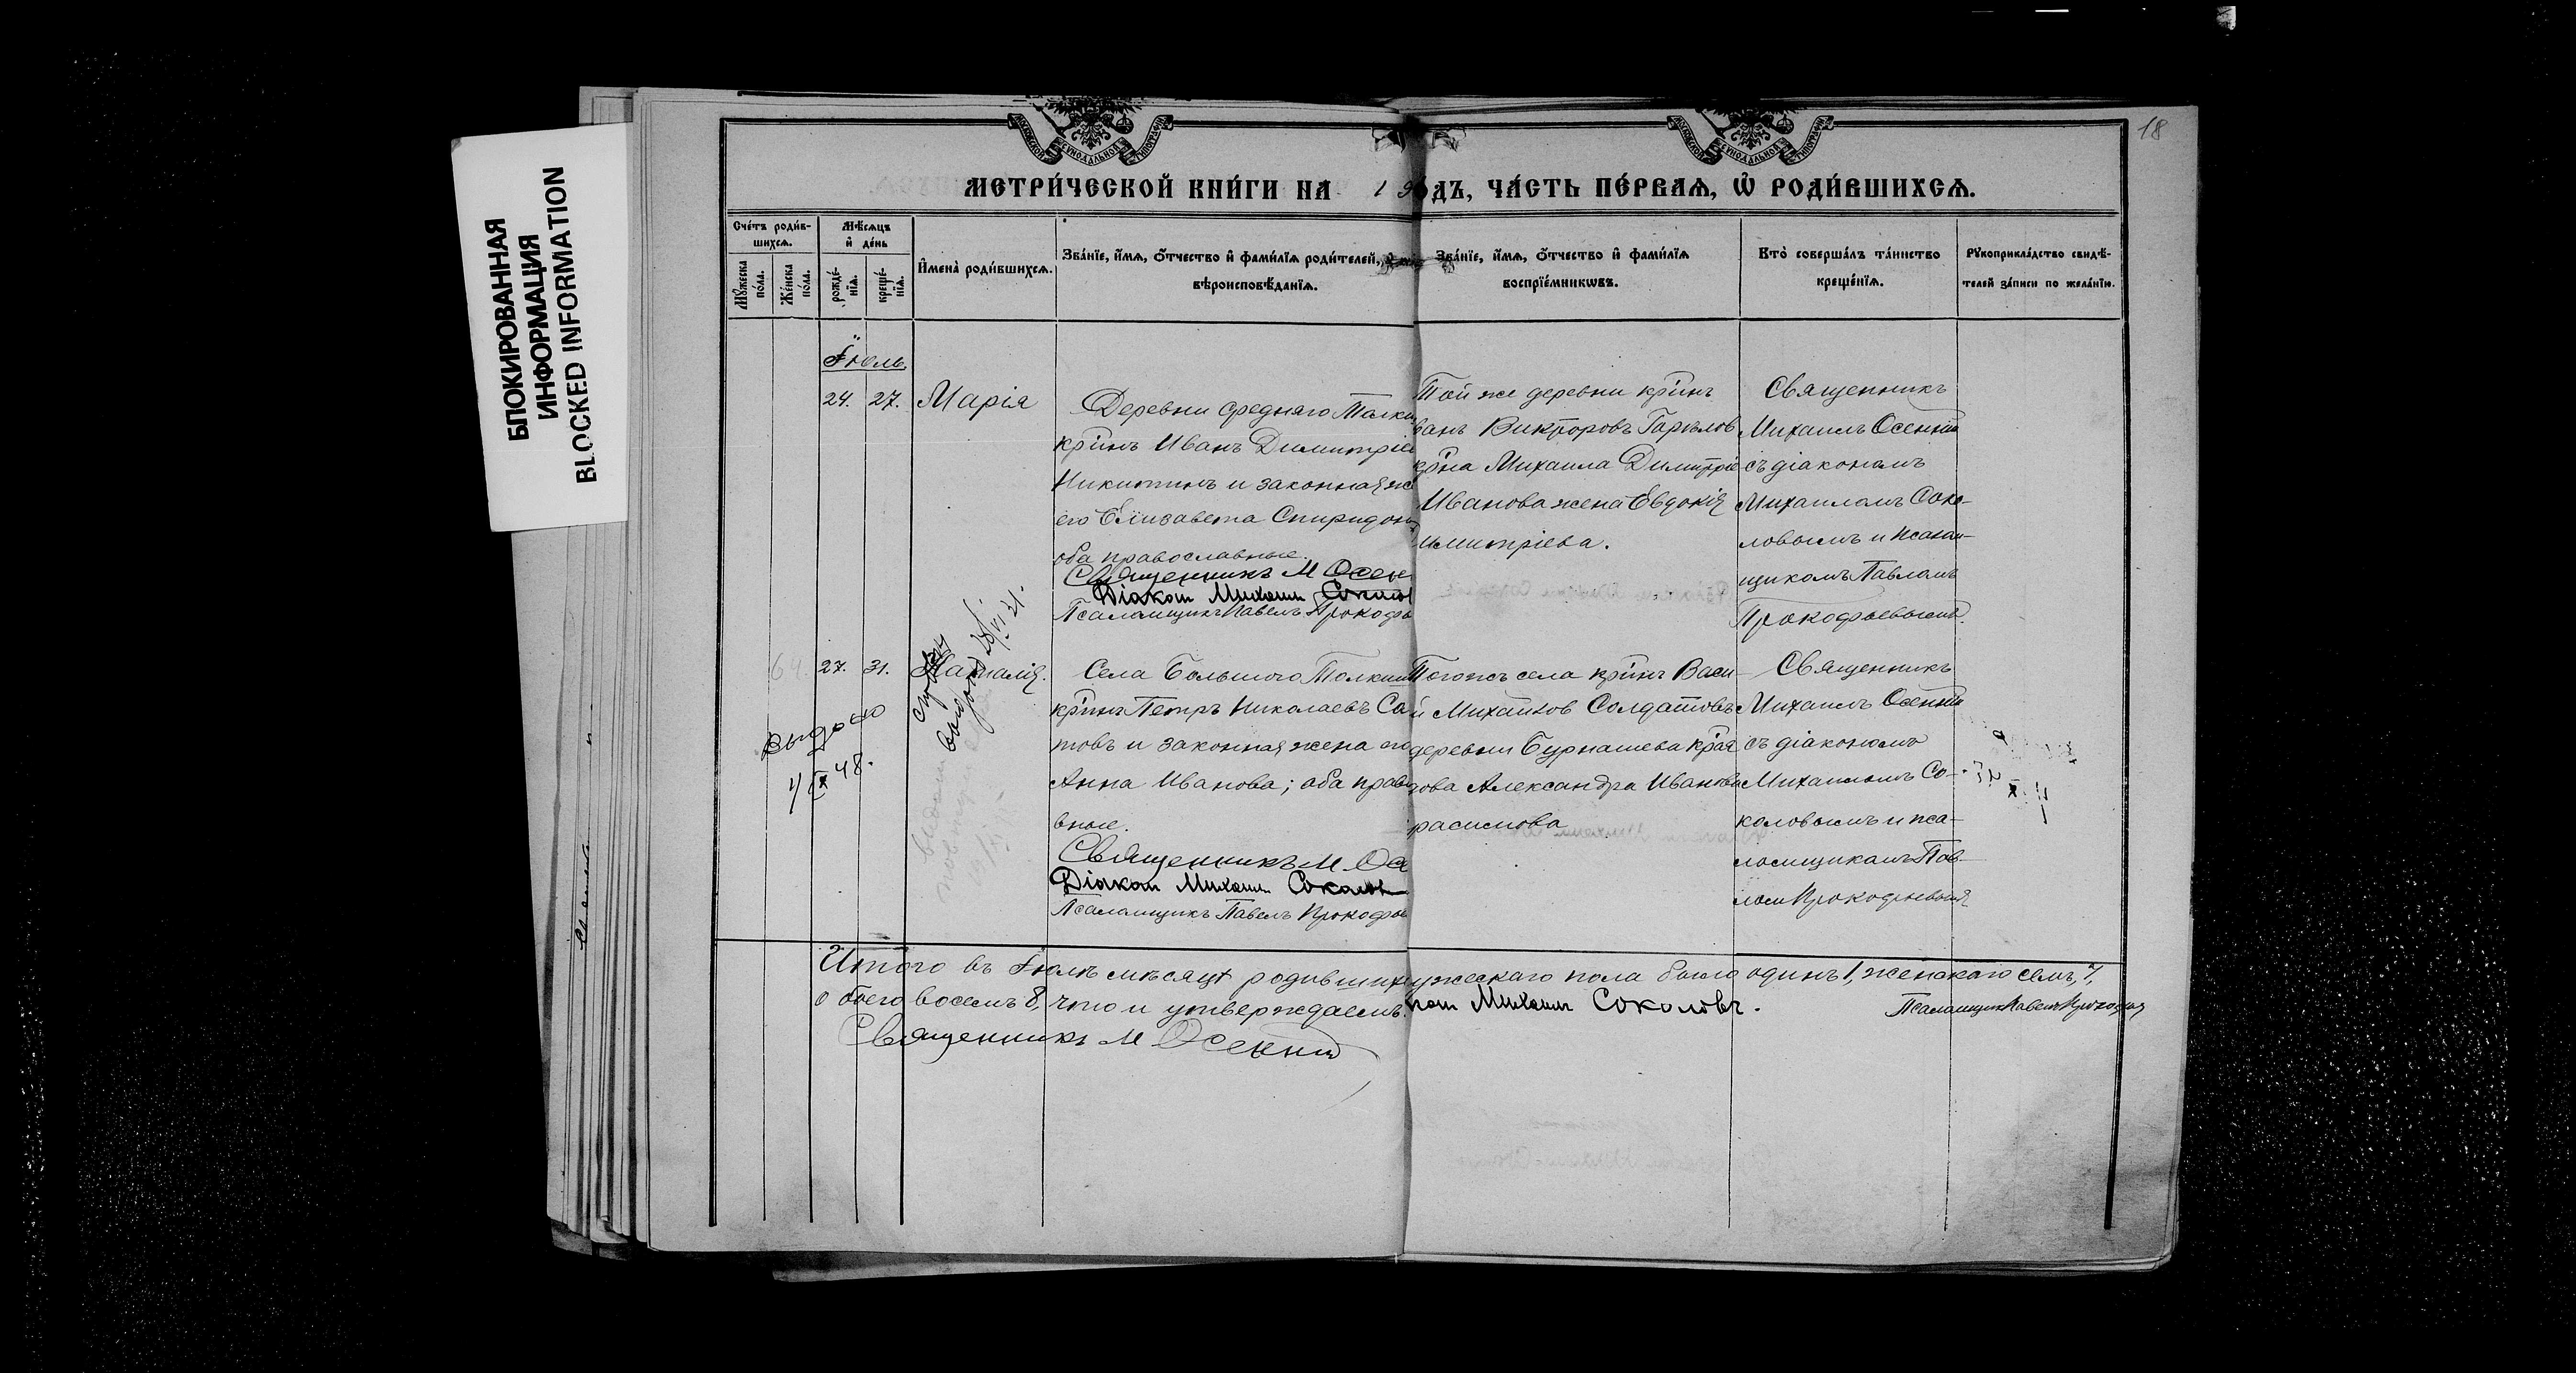 18
БЛОКИРОВАННАЯ
ИНФОРМАЦИЯ
BLOCKED INFORMATION
МЕТРИ́ЧЕСКОЙ КНИ́ГИ НА 1 9 ОДЪ, ЧА́СТЬ ПЕ́РВАѦ, Ѡ РОДИ́ВШИХСѦ.
Сче́тъ роди́в-
шихсѧ.
Мꙋжеска по́ла.
Же́нска по́ла.
Мѣ́сѧцъ
и де́нь
рожде́-
нїѧ.
креще́-
нїѧ.
Имена̀ роди́вшихсѧ.
Зва́нїе, и́мѧ, о́тчество и фами́лїѧ роди́телей,
вѣроисповѣ́данїѧ.
Зва́нїе, и́мѧ, о́тчество и фами́лїѧ
воспрїе́мникѡвъ.
Кто̀ соверша́лъ та́инство
креще́нїѧ.
Рꙋкоприкла́дство свидѣ́-
телей за́писи по жела́нїю.
Іюль.
24. 27. Марія
Деревни Средняго Толки
крiнъ Иванъ Димитріе
Никитинъ и законная же
его Елизавета Спиридон
оба православные.
Священникъ М Осен
Діакон Михаил Соколов
Псаломщикъ Павелъ Прокофь
Той же деревни крiнъ
ванъ Викторовъ Горѣлов
крiна Михаила Димитріе
Иванова жена Евдокія
имитріева.
Священникъ
Михаилъ Осенній
съ діакономъ
Михаиломъ Соко-
ловымъ и псалом-
щикомъ Павломъ
Прокофьевымъ.
64. 27. 31. Наталія.
выдано
4/IX 48.
Села Большого Толкиш
крiнъ Петръ Николаевъ Сол
товъ и законная жена его
Анна Иванова; оба правос
вные.
Священникъ М. Ос
Діакон Михаил Соколов
Псаломщикъ Павелъ Прокофь
Тогожъ села крiнъ Васи-
й Михайлов Солдатовъ
деревни Бурнашева крiна
Александра Иванова
расимова
Священникъ
Михаилъ Осенній
съ діакономъ
Михаиломъ Со-
коловымъ и пса-
ломщикомъ Пав-
ломъ Прокофьевымъ
Итого въ Іюлѣ мѣсяцѣ родивших ужескаго пола было одинъ 1, женскаго семь 7,
обоего восемь 8, что и утверждаемъ.
кон Михаил Соколовъ.
Псаломщикъ Павелъ Прокофьев
Священникъ М Осенній